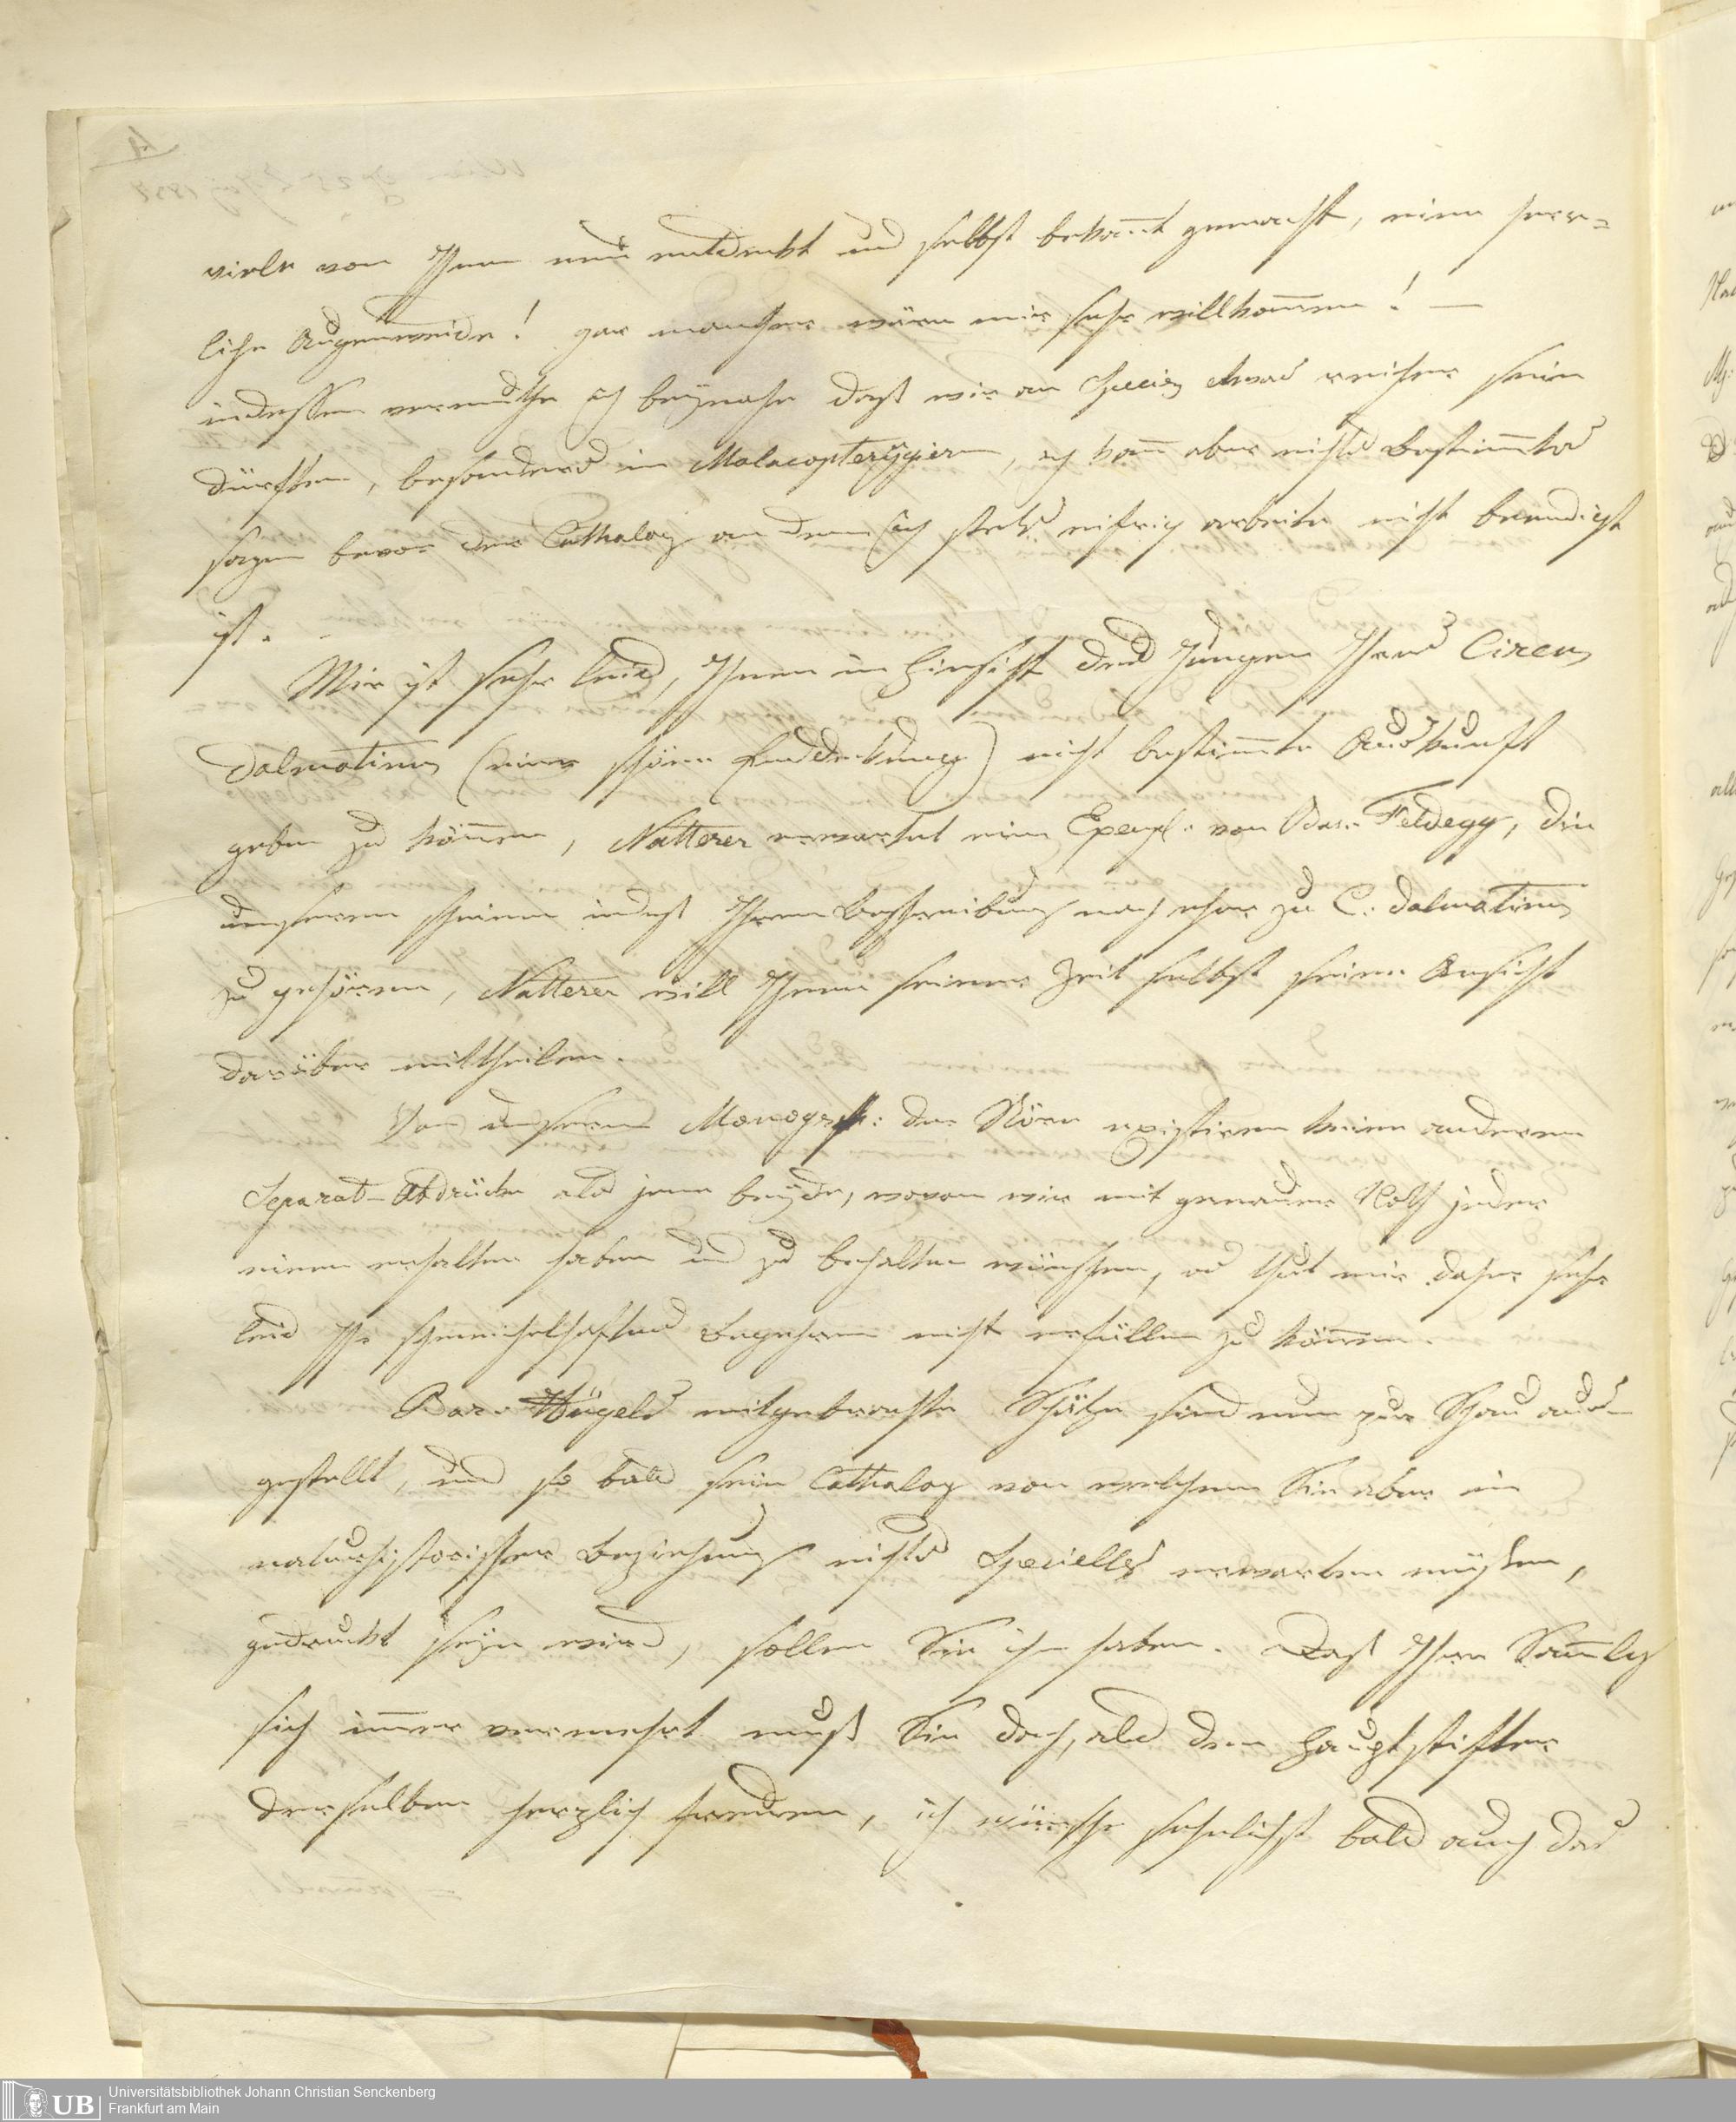 viele von Ihnen neu entdeckt und selbst bekan̅t gemacht, eine herr=
liche Augenweide! gar manches wäre mir sehr willkom̅en! —
indessen vermuthe ich beÿnahe daß wir an Species etwas reicher sein
dürften, besonders in Malacopterÿgiern, ich kan̅ aber nichts Bestim̅tes
sagen bevor der Cathalog an dem ich stets eifrig arbeite nicht beendigt
ist.
Mir ist sehr leid, Ihnen in Hinsicht des Jungen Ihres Circus
dalmatinus (einer schönen Entdeckung) nicht bestim̅te Auskunft
geben zu kön̅en, Natterer erwartet ein Expl. von Bar. Feldegg, die
unseren scheinen indeß Ihrer Beschreibung nach eher zu C. dalmatinus
zu gehören, Natterer will Ihnen seiner Zeit selbst seine Ansicht
darüber mittheilen.
Von unserer Monograph: der Störe existiren keine anderen
Separat-Abdrücke als jene beÿde, wovon wir mit genauer Noth jeder
einen erhalten haben und zu behalten wünschen, es thut mir daher sehr
leid Ihr schmeichelhaftes Begehren nicht erfüllen zu kön̅en.
Bar. Hügels mitgebrachte Schätze sind nun zur Schau aus=
gestellt, und so bald sein Cathalog von welchem Sie aber in
naturhistorischer Beziehung nichts Specielles erwarten müssen,
gedruckt seÿn wird, sollen Sie ihn haben. Daß Ihre Sam̅lg
sich im̅er vermehrt muß Sie doch, als den Hauptstifter
derselben herzlich freuen, ich wünsche sehnlichst bald auch das
Universitätsbibliothek Johann Christian Senckenberg
Frankfurt am Main
UB